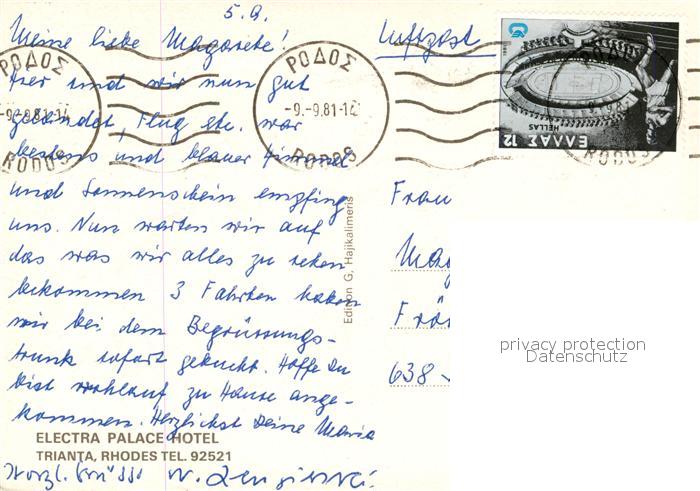 5.9.
Meine liebe Magarete!
Hier sind wir nun gut
gelandet, Flug etc. war
bestens und blauer Himmel
und Sonnenschein empfing
uns. Nun warten wir auf
das was wir alles zu sehen
bekommen 3 Fahrten haben
wir bei dem Begrüssungs-
trunk sofort gebucht. Hoffe Du
bist wohlauf zu Hause ange-
kommen. Herzlichst Deine Maria
ELECTRA PALACE HOTEL
TRIANTA, RHODES TEL. 92521
Herzl. Grüsse
Edition G. Hajikalimeris
Luftpost
ΡΟΔΟΣ
-9.-9.81-12
RODOS
ΡΟΔΟΣ
-9.-9.81-12
RODOS
RODOS
ΕΛΛΑΣ 12
HELLAS
Frau
Mag
Frö
638-
privacy protection
Datenschutz